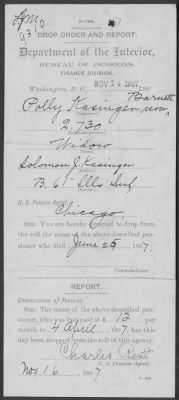 DROP ORDER AND REPORT.
Department of the Interior,
BUREAU OF PENSIONS,
FINANCE DIVISION.
Washington, D. C., NOV 14 1907, 190
Polly Kasinger, now Barnett
2,730
Widow
Solomon J. Kasinger
B. 61" Ills Inf.
U. S. Pension Agent,
Chicago.
SIR: You are hereby directed to drop from
the roll the name of the above-described pen-
sioner who died June 25, 1907.
Commissioner.
REPORT.
Commissioner of Pensions.
SIR: The name of the above-described pen-
sioner, who was paid at $12 per
month to 4 April, 1907, has this
day been dropped from the roll of this agency.
Charles Bent
U. S. Pension Agent.
Nov 16 1907